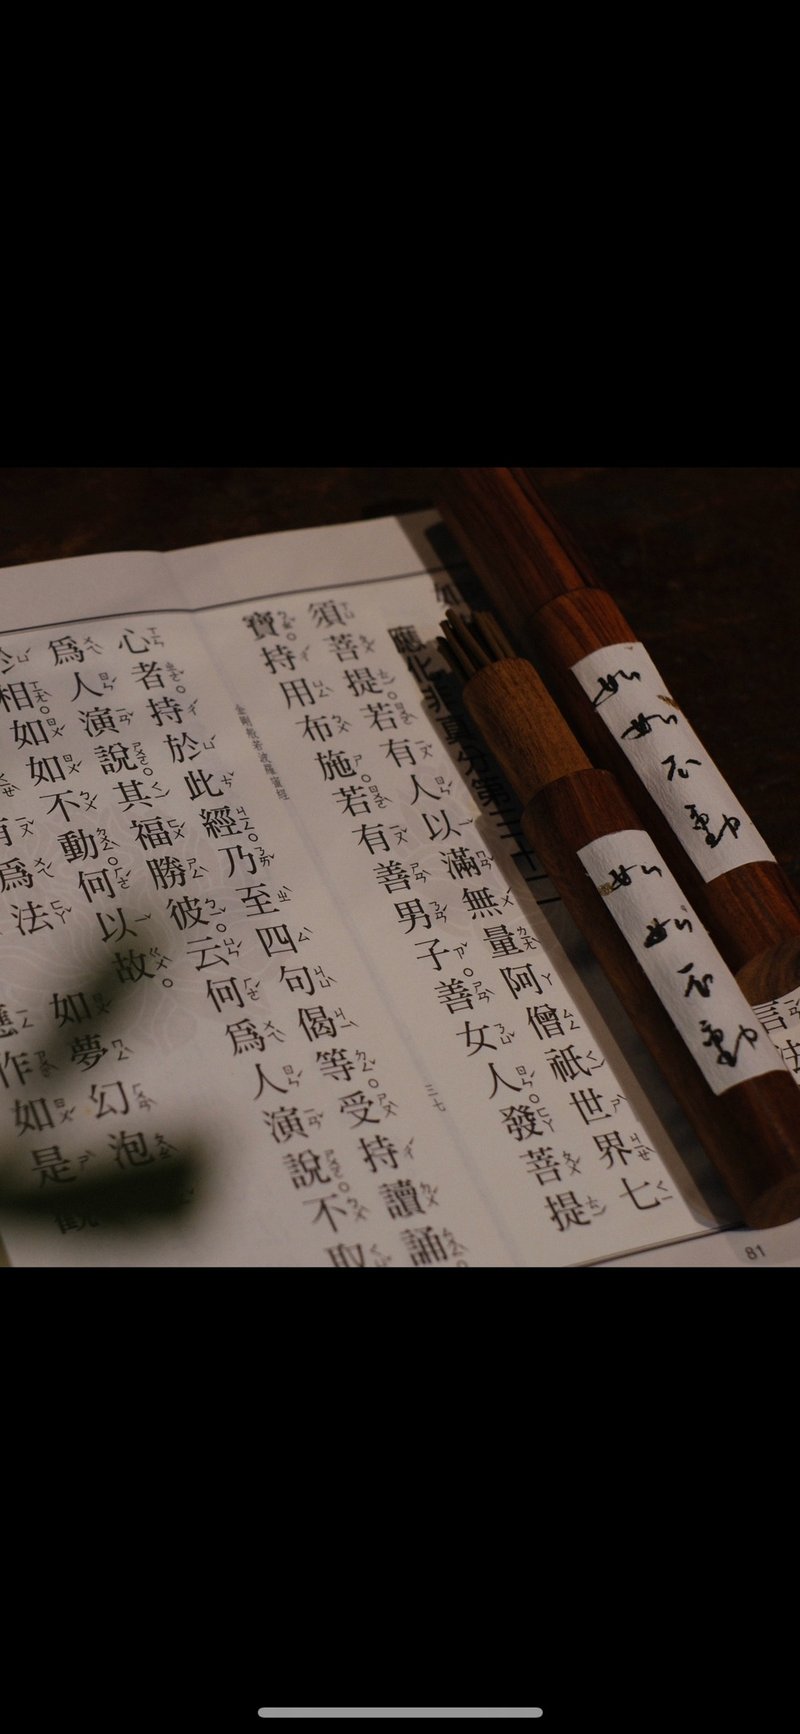 如如不動
如如不動
應化非真分第三十二
須菩提。若有人以滿無量阿僧祇世界七
寶。持用布施。若有善男子。善女人。發菩提
金剛般若波羅蜜經
三七
心者。持於此經。乃至四句偈等。受持讀誦。
爲人演說。其福勝彼。云何爲人演說。不取
於相。如如不動。何以故。
有爲法 如夢幻泡
應作如是觀
81